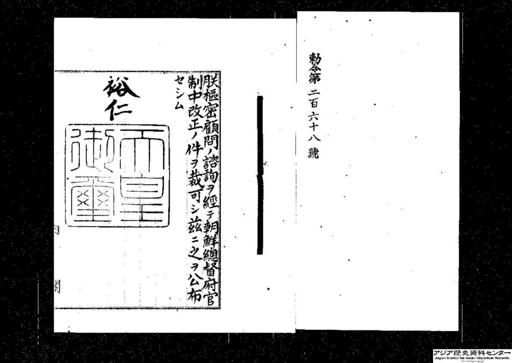 勅令第二百六十八號
朕樞密顧問ノ諮詢ヲ經テ朝鮮總督府官
制中改正ノ件ヲ裁可シ茲ニ之ヲ公布
セシム
裕仁
天皇
御璽
内閣
アジア歴史資料センター
Japan Center for Asian Historical Records